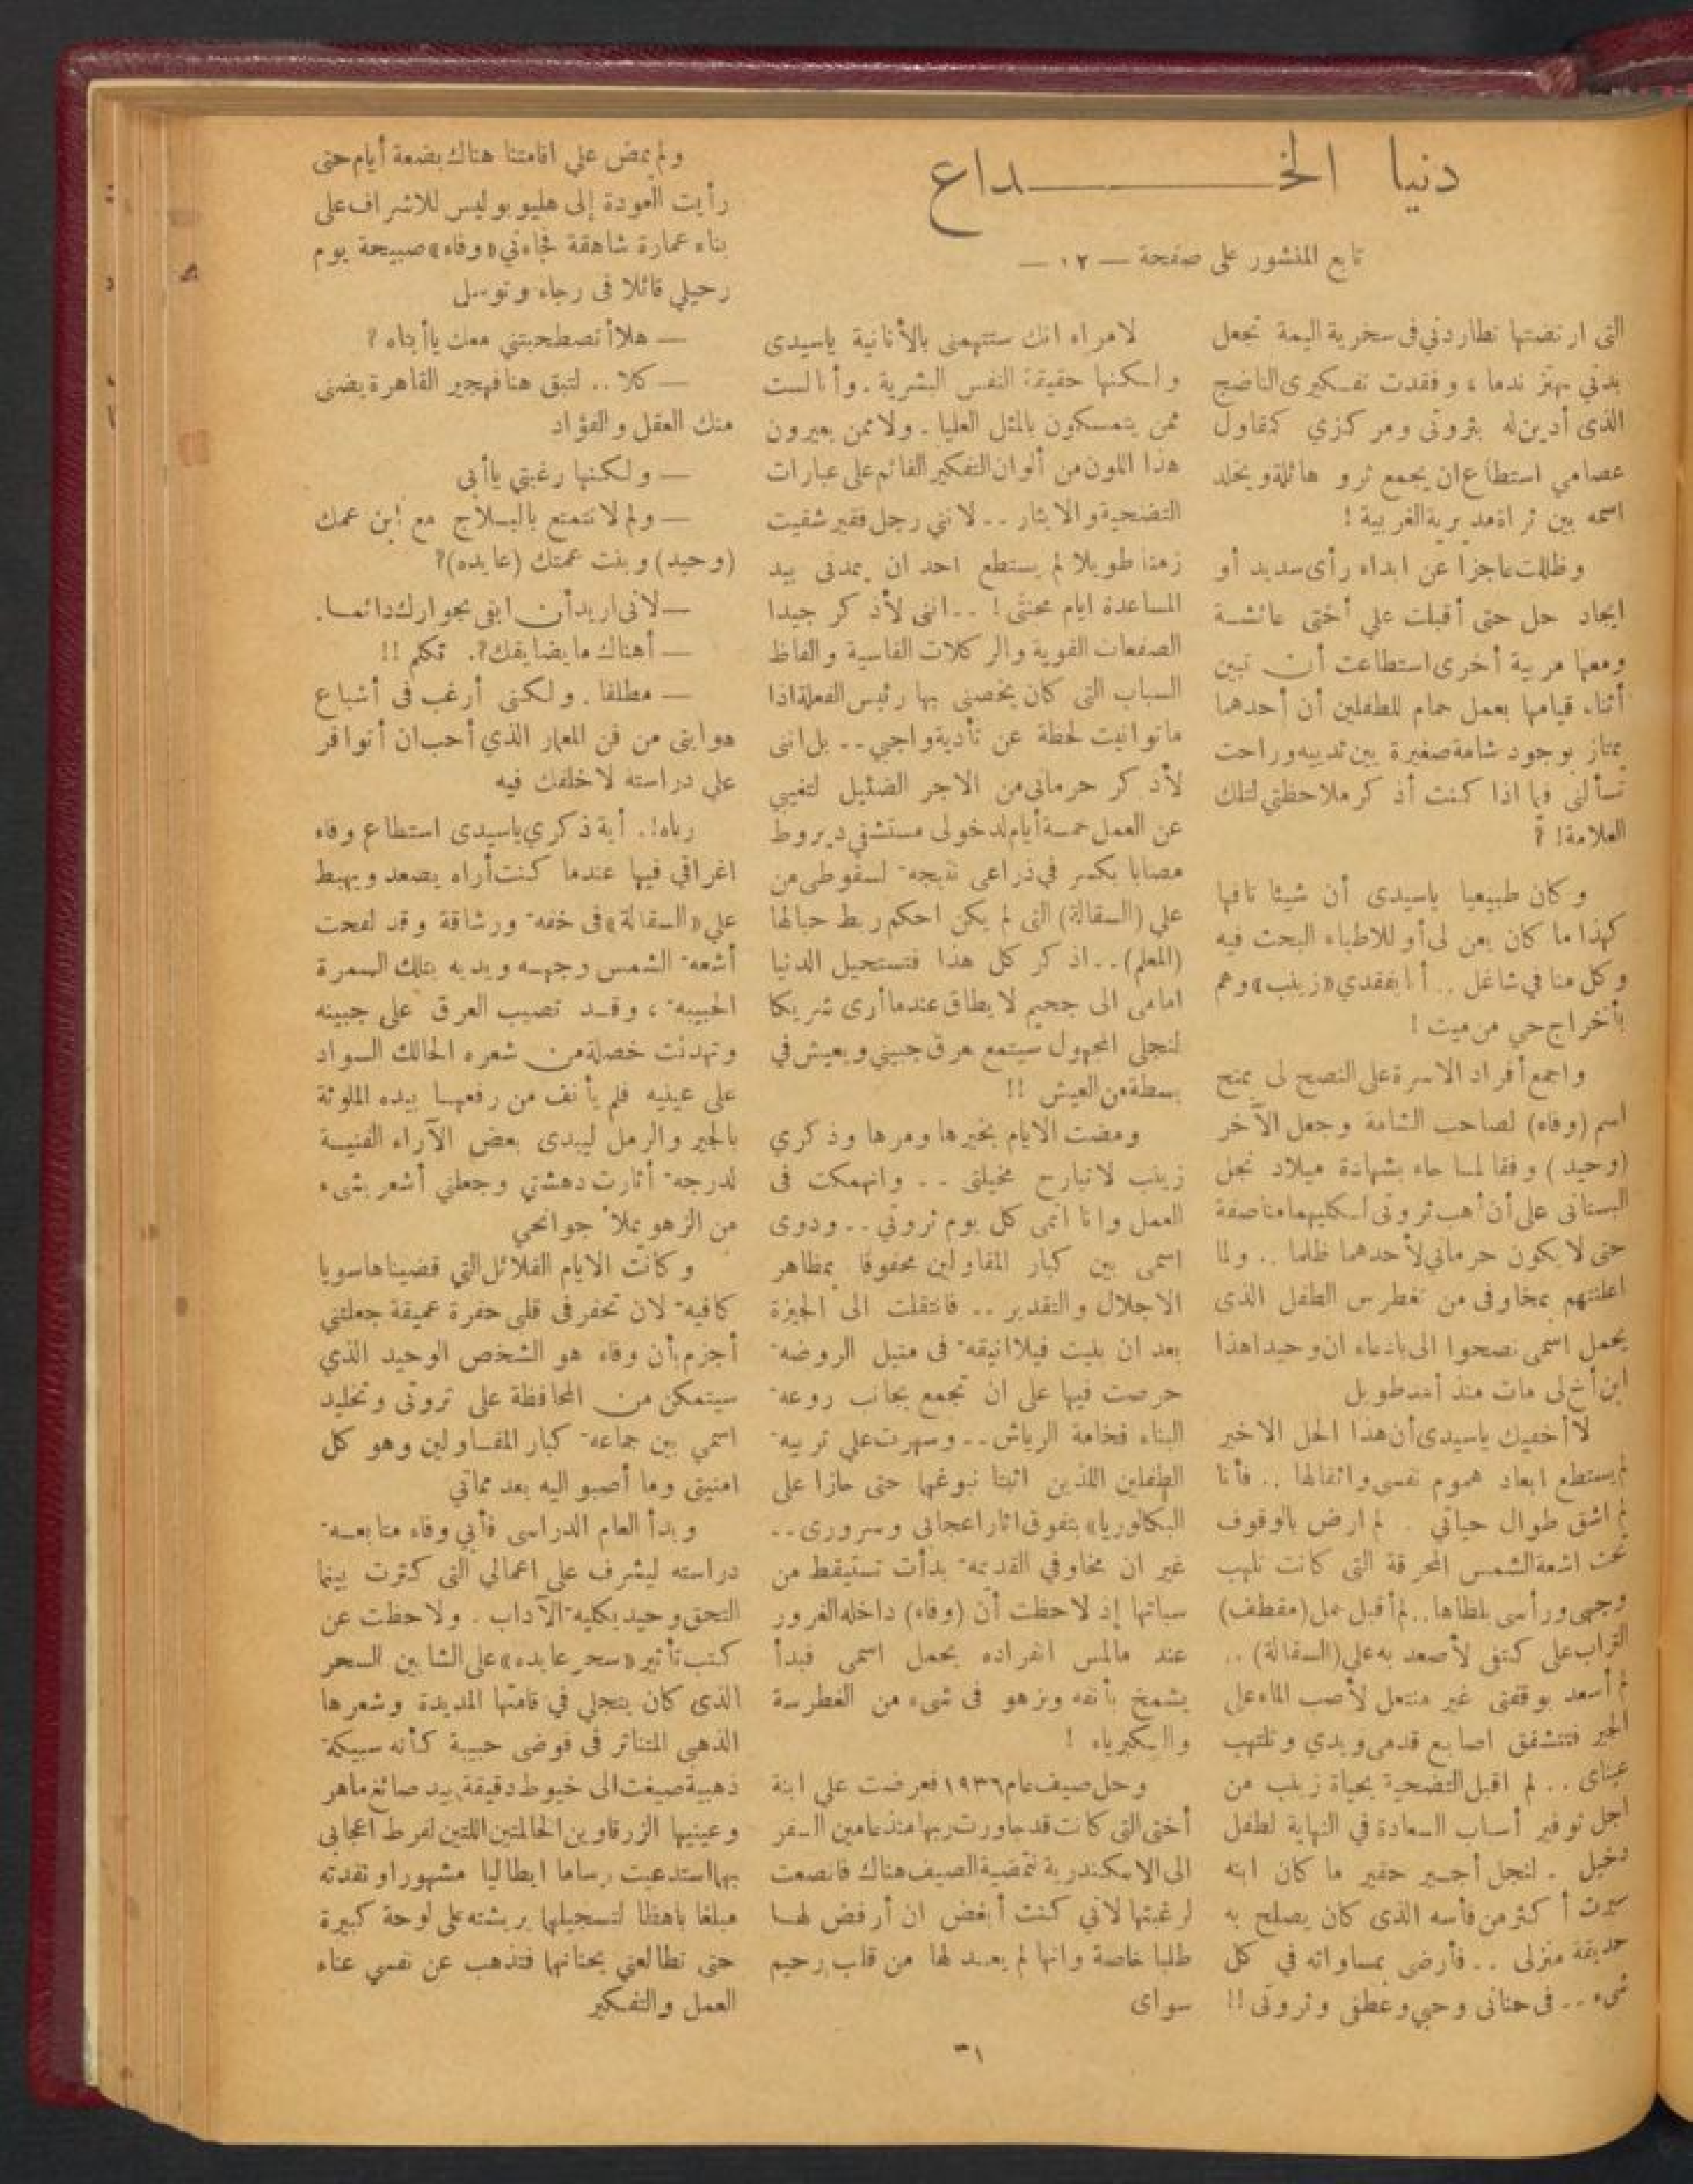 دنيا الخــــــداع
تابع المنشور على صفحة — ١٢ —
التى ارتضتها تطاردني فى سخرية اليمة تجعل
بدني يهتز ندما ، وفقدت تفكيرى الناضج
الذى أدين له بثروتى ومركزي كمقاول
عصامي استطاع ان يجمع ثرو هائلة ويخلد
اسمه بين ثراة مديرية الغربية !
وظللت عاجزا عن ابداء رأى سديد أو
ايجاد حل حتى أقبلت علي أختى عائشة
ومعها مربية أخرى استطاعت أن تبين
أثناء قيامها بعمل حمام للطفلين أن أحدهما
يمتاز بوجود شامة صغيرة بين ثدييه وراحت
تسألنى فيما اذا كنت أذكر ملاحظتي لتلك
العلامة! ؟
وكان طبيعيا ياسيدى أن شيئا تافها
كهذا ما كان يعن لى أو للاطباء البحث فيه
وكل منا في شاغل .. أنا بفقدي «زينب» وهم
بأخراج حي من ميت !
واجمع أفراد الاسرة على النصح لى بمنح
اسم (وفاء) لصاحب الشامة وجعل الآخر
(وحيد) وفقا لما جاء بشهادة ميلاد نجل
البستانى على أن أهب ثروتى لكليهما مناصفة
حتى لا يكون حرماني لأحدهما ظلما .. ولما
اعلنتهم بمخاوفى من تغطرس الطفل الذى
يحمل اسمى نصحوا الى بادعاء ان وحيدا هذا
ابن أخ لى مات منذ أمد طويل
لا أخفيك ياسيدى أن هذا الحل الاخير
لم يستطع ابعاد هموم نفسى واثقالها .. فأنا
لم اشق طوال حياتي . لم ارض بالوقوف
تحت اشعة الشمس المحرقة التى كانت تلهب
وجهى ورأسى بلظاها .. لم أقبل حمل (مقطف)
التراب على كتفى لأصعد به علي (السقالة) ..
لم أسعد بوقفتى غير منتعل لأصب الماء على
الجير فتتشقق اصابع قدمى ويدي وتلتهب
عيناى .. لم اقبل التضحية بحياة زينب من
اجل توفير أسباب السعادة في النهاية لطفل
دخيل . لنجل أجير حقير ما كان ابنه
سيرث أكثر من فأسه الذى كان يصلح به
حديقة منزلى .. فأرضى بمساواته في كل
شىء .. فى حنانى وحبي وعطفى وثروتى !!
لامراء انك ستتهمنى بالأنانية ياسيدى
ولكنها حقيقة النفس البشرية . وأنا لست
ممن يتمسكون بالمثل العليا . ولا ممن يعيرون
هذا اللون من ألوان التفكير القائم على عبارات
التضحية والايثار .. لانني رجل فقير شقيت
زمنا طويلا لم يستطع احد ان يمدنى بيد
المساعدة ايام محنتى ! .. اننى لأذكر جيدا
الصفعات القوية والركلات القاسية والفاظ
السباب التى كان يخصنى بها رئيس الفعلة اذا
ماتوانيت لحظة عن تأدية واجبي .. بل اننى
لأذكر حرمانى من الاجر الضئيل لتغيبي
عن العمل خمسة أيام لدخولى مستشفى ديروط
مصابا بكسر في ذراعى نتيجة لسقوطى من
علي (السقالة) التى لم يكن احكم ربط حبالها
(المعلم) .. اذكر كل هذا فتستحيل الدنيا
امامى الى جحيم لا يطاق عندما أرى شريكا
لنجلى المجهول سيتمع بعرق جبيني ويعيش في
بسطة من العيش !!
ومضت الايام بخيرها ومرها وذكري
زينب لاتبارح مخيلتى .. وانهمكت فى
العمل وانا انمى كل يوم ثروتي .. ودوى
اسمى بين كبار المقاولين محفوفا بمظاهر
الاجلال والتقدير .. فانتقلت الى الجيزة
بعد ان بنيت فيلا انيقة فى منيل الروضة
حرصت فيها على ان تجمع بجانب روعة
البناء فخامة الرياش .. وسهرت علي تربية
الطفلين اللذين اثبتا نبوغها حتى حازا على
البكالوريا» بتفوق اثار اعجابى وسرورى ..
غير ان مخاوفي القديمة بدأت تستيقظ من
سباتها إذ لاحظت أن (وفاء) داخله الغرور
عند مالمس انفراده بحمل اسمى فبدأ
يشمخ بأنفه ويزهو فى شىء من الغطرسة
والكبرياء !
وحل صيف عام ١٩٣٦ فعرضت علي ابنة
أختى التى كانت قد جاورت ربها منذ عامين السفر
الى الاسكندرية لتمضية الصيف هناك فانصعت
لرغبتها لاني كنت أبغض ان أرفض لها
طلبا خاصة وانها لم يعد لها من قلب رحيم
سواى
ولم يمض علي اقامتنا هناك بضعة أيام حتى
رأيت العودة إلى هليوبوليس للاشراف على
بناء عمارة شاهقة فجاءني «وفاء» صبيحة يوم
رحيلي قائلا فى رجاء وتوسل
— هلا أتصطحبتني معك يا أبتاه ؟
— كلا .. لتبق هنا فهجير القاهرة يضنى
منك العقل والفؤاد
— ولكنها رغبتي يا أبى
— ولم لا تتمتع بالبلاج مع ابن عمك
(وحيد) وبنت عمتك (عايده)؟
— لانى اريد أن ابقى بجوارك دائما .
— أهناك ما يضايقك؟. تكلم !!
— مطلقا . ولكنى أرغب فى أشباع
هوايتى من فن المعمار الذي أحب ان أتوافر
علي دراسته لاخلفك فيه
رباه!. أية ذكري ياسيدى استطاع وفاء
اغراقي فيها عندما كنت أراه يصعد ويهبط
علي «السقالة» فى خفة ورشاقة وقد لفحت
أشعة الشمس وجهه ويديه بتلك السمرة
الحبيبة ، وقد تصبب العرق على جبينه
وتهدلت خصلة من شعره الحالك السواد
على عينيه فلم يأنف من رفعها بيده الملوثة
بالجير والرمل ليبدى بعض الآراء الفنية
لدرجة أثارت دهشتي وجعلني أشعر بشىء
من الزهو يملأ جوانحي
وكانت الايام القلائل التي قضيناها سويا
كافية لان تحفر فى قلبى حفرة عميقة جعلتني
أجزم بأن وفاء هو الشخص الوحيد الذي
سيتمكن من المحافظة على ثروتى وتخليد
اسمي بين جماعة كبار المقاولين وهو كل
امنيتى وما أصبو اليه بعد مماتي
وبدأ العام الدراسى فأبي وفاء متابعة
دراسته ليشرف على اعمالي التى كثرت بينما
التحق وحيد بكلية الآداب . ولاحظت عن
كثب تأثير «سحر عايده» على الشابين السحر
الذى كان يتجلي في قامتها المديدة وشعرها
الذهبى المتناثر فى فوضى حبيبة كأنه سبيكة
ذهبية صيغت الى خيوط دقيقة بيد صائغ ماهر
وعينيها الزرقاوين الحالمتين اللتين لفرط اعجابى
بها استدعيت رساما ايطاليا مشهورا ونقدته
مبلغا باهظا لتسجيلها بريشته على لوحة كبيرة
حتى تطالعني بحنانها فتذهب عن نفسي عناء
العمل والتفكير